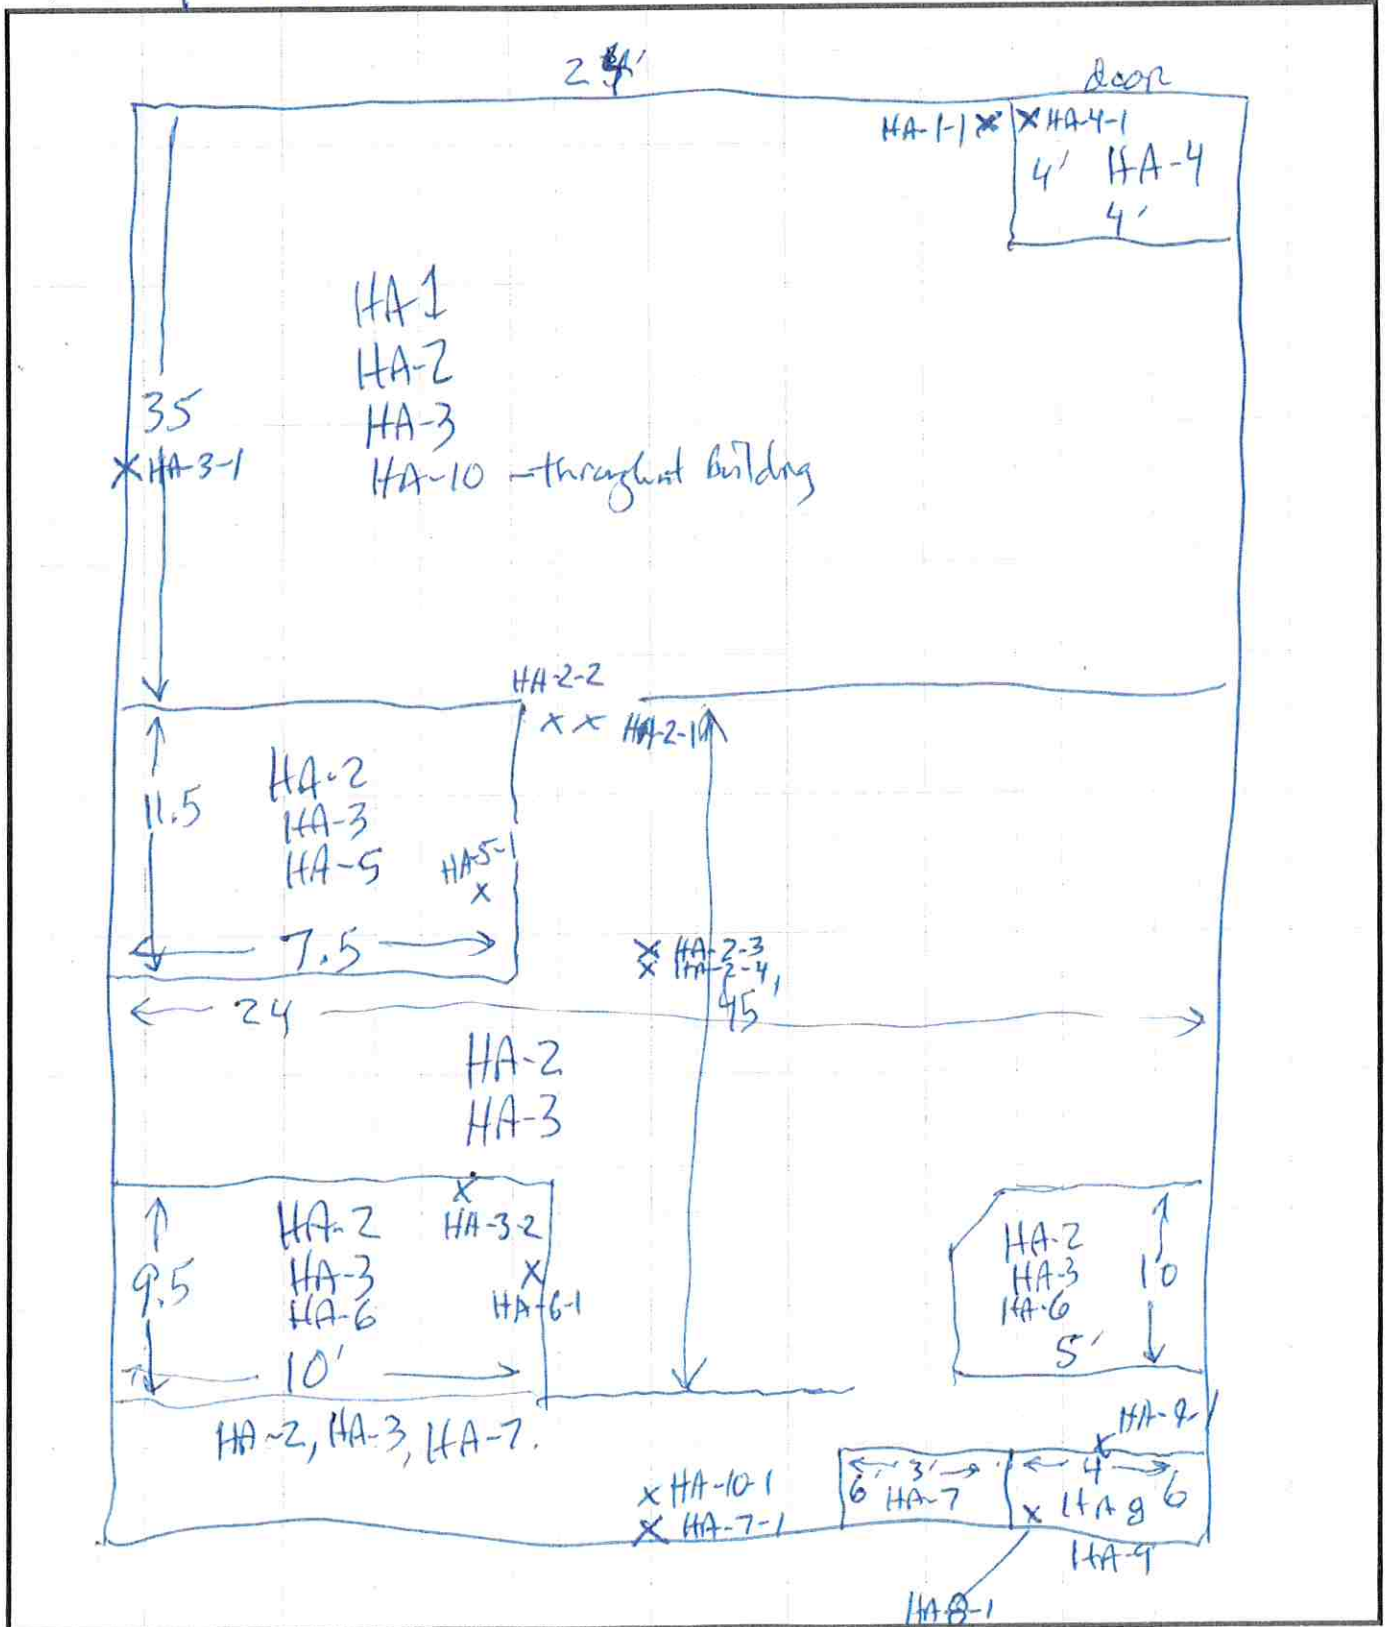 door
HA-1-1 X X HA-4-1
4' HA-4
4'
HA-1
HA-2
HA-3
HA-10 - throughout building
35
X HA-3-1
HA-2-2
X X HA-2-1
HA-2
11.5
HA-3
HA-5
HA-5-1
X
7.5
X HA-2-3
X HA-2-4
45'
24
HA-2
HA-3
X
HA-2
HA-3-2
HA-3
X
9.5
HA-6
HA-6-1
10'
HA-2
HA-3
10
HA-6
5'
HA-2, HA-3, HA-7.
X
6' 3' 4 6
HA-7
X HA-10-1
X HA-7-1
X HA 8
HA-9
HA-8-1